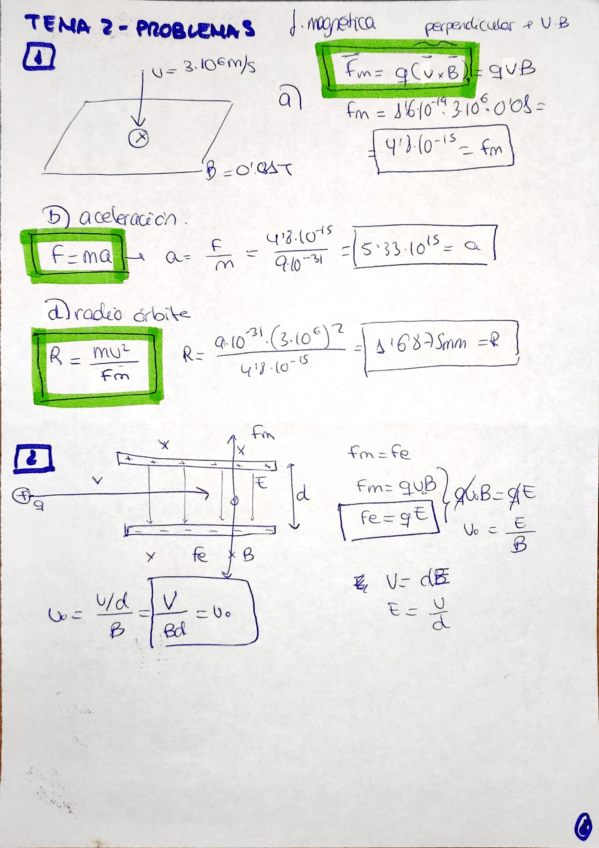 TEMA 2 - PROBLEMAS f. magnética perpendicular a v B
1
v = 3·10⁶ m/s
B = 0'01T
a) Fm = q(v x B) = qvB
fm = 1'6·10⁻¹⁹·3·10⁶·0'01 =
= 4'8·10⁻¹⁵ = fm
b) aceleración.
F = ma → a = F/m = 4'8·10⁻¹⁵/9·10⁻³¹ = 5'33·10¹⁵ = a
d) radio órbita
R = mv²/Fm R = 9·10⁻³¹·(3·10⁶)²/4'8·10⁻¹⁵ = 1'6875mm = R
2
fm
x x
v E d
+ q
x fe x B
fm = fe
Fm = qv₀B
fe = qE
qv₀B = qE
v₀ = E/B
V = dE
E = V/d
v₀ = V/d/B = V/Bd = v₀